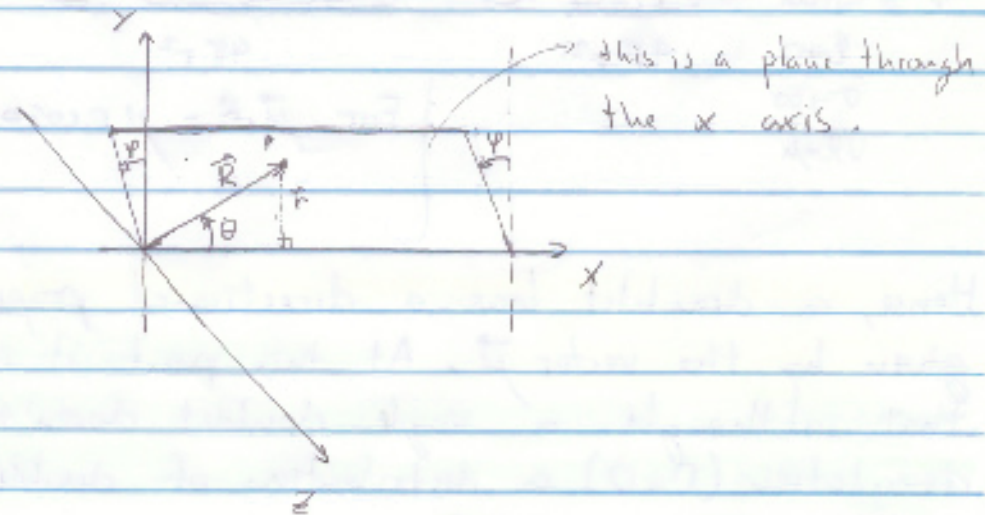 Y
this is a plane through
the x axis.
φ
φ
R
r
θ
X
Z